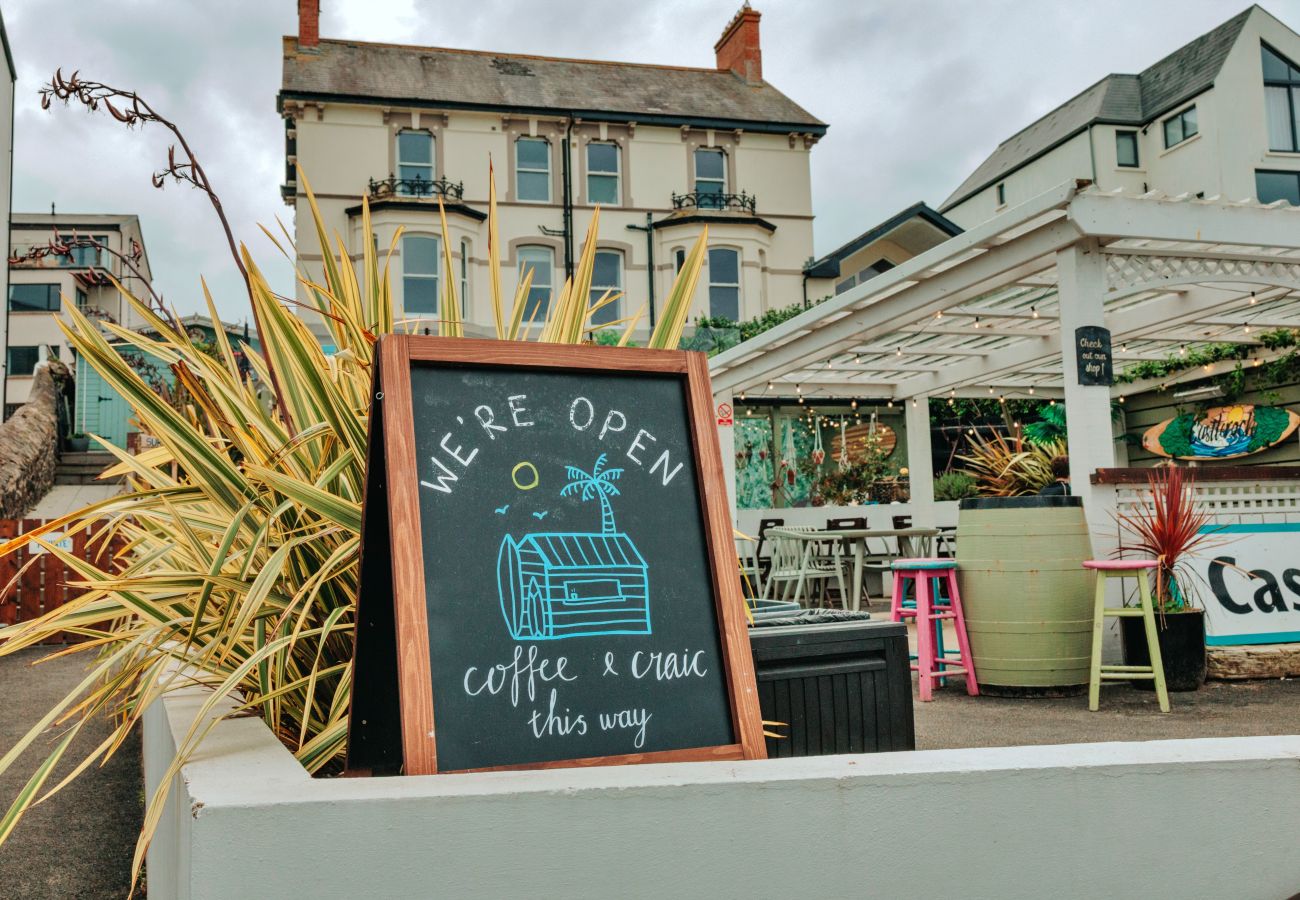 WE'RE OPEN
coffee & craic
this way
Check
out our
shop!
Castlerock
Cas